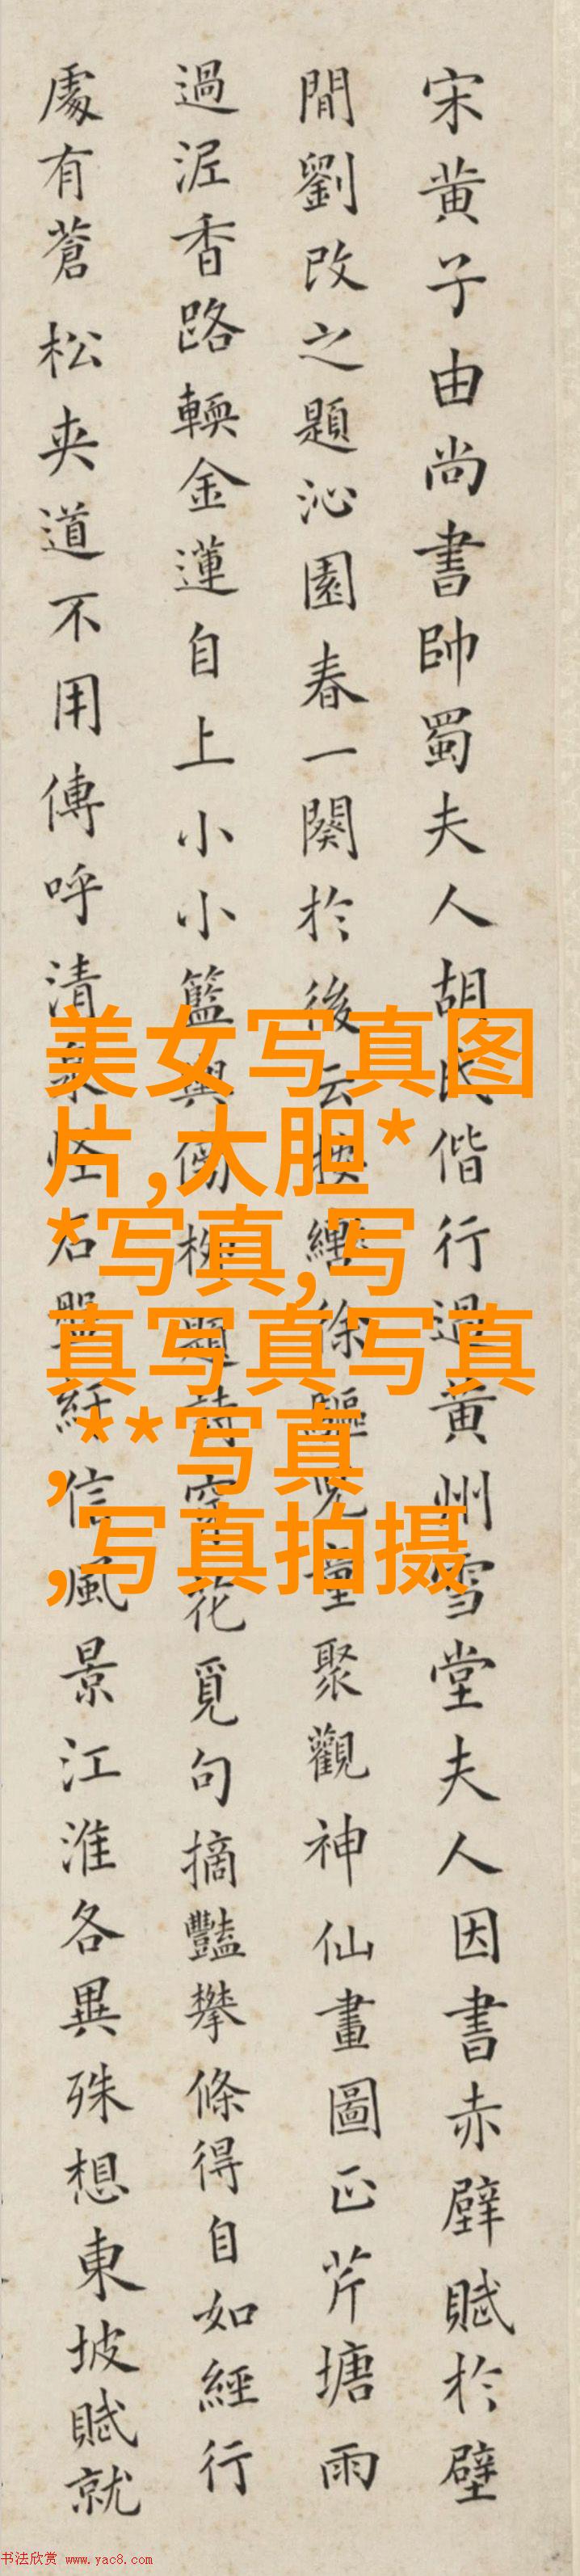 宋黄子由尚書帥蜀夫人胡氏偕行過黄州雪堂夫人因書赤壁賦於壁
間劉改之題沁園春一闋於後云按轡徐驅兒童聚觀神仙畫圖正芹塘雨
過泥香路輭金蓮自上小小籃輿傍柳題詩穿花覓句摘豔攀條得自如經行
處有蒼松夾道不用傳呼清泉怪石盤紆信風景江淮各異殊想東坡賦就
美女写真图
片,大胆*
*写真,写
真写真写真
,**写真
,写真拍摄
书法欣赏 www.yac8.com